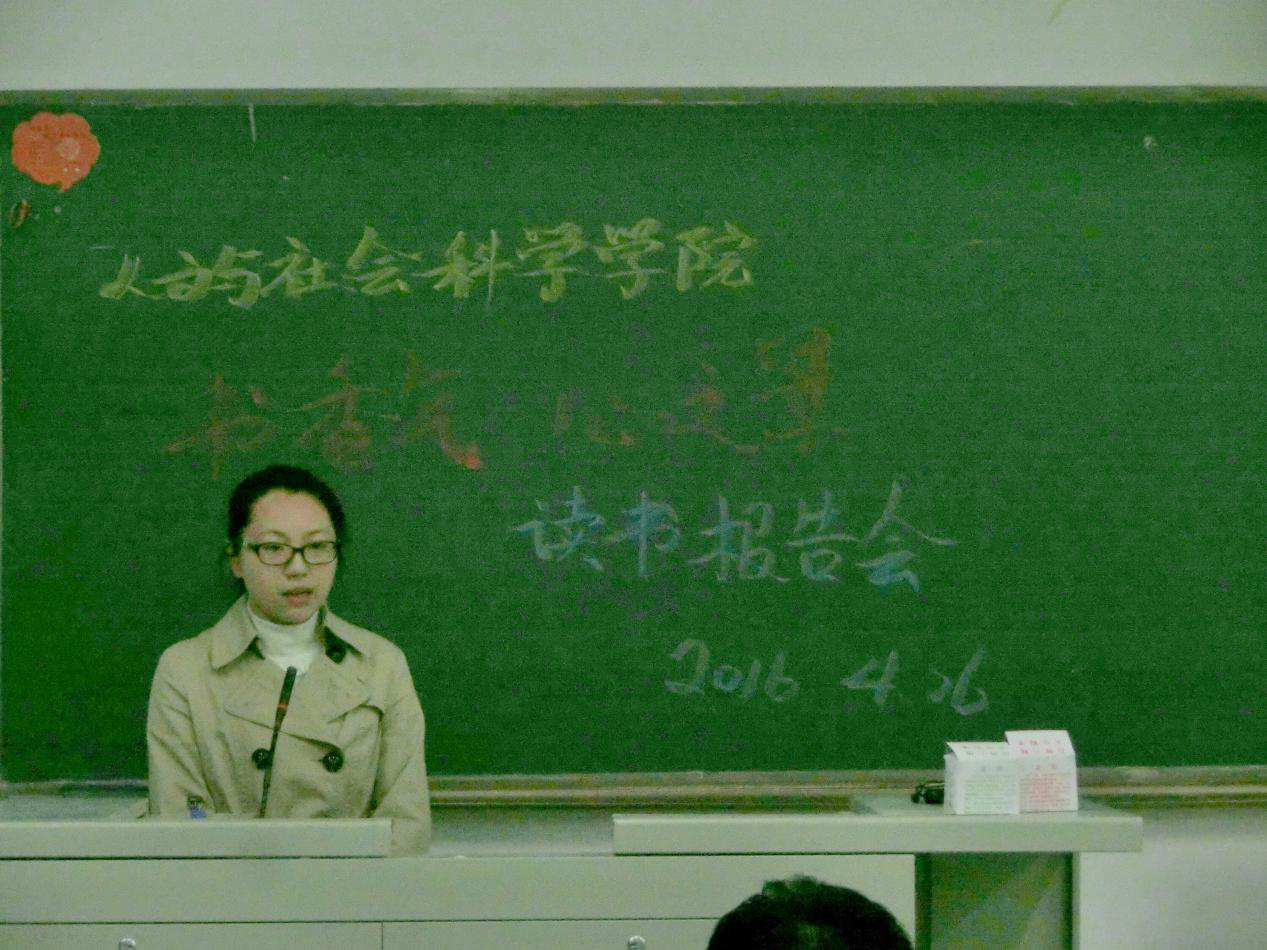 人文与社会科学学院
书香气
读书报告会
2016 4. 26